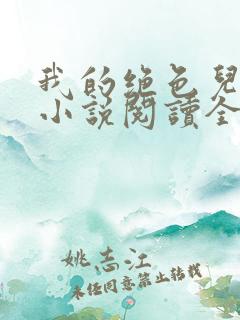 我的绝色兒
小说閱讀全
姚志江
未经同意禁止转载